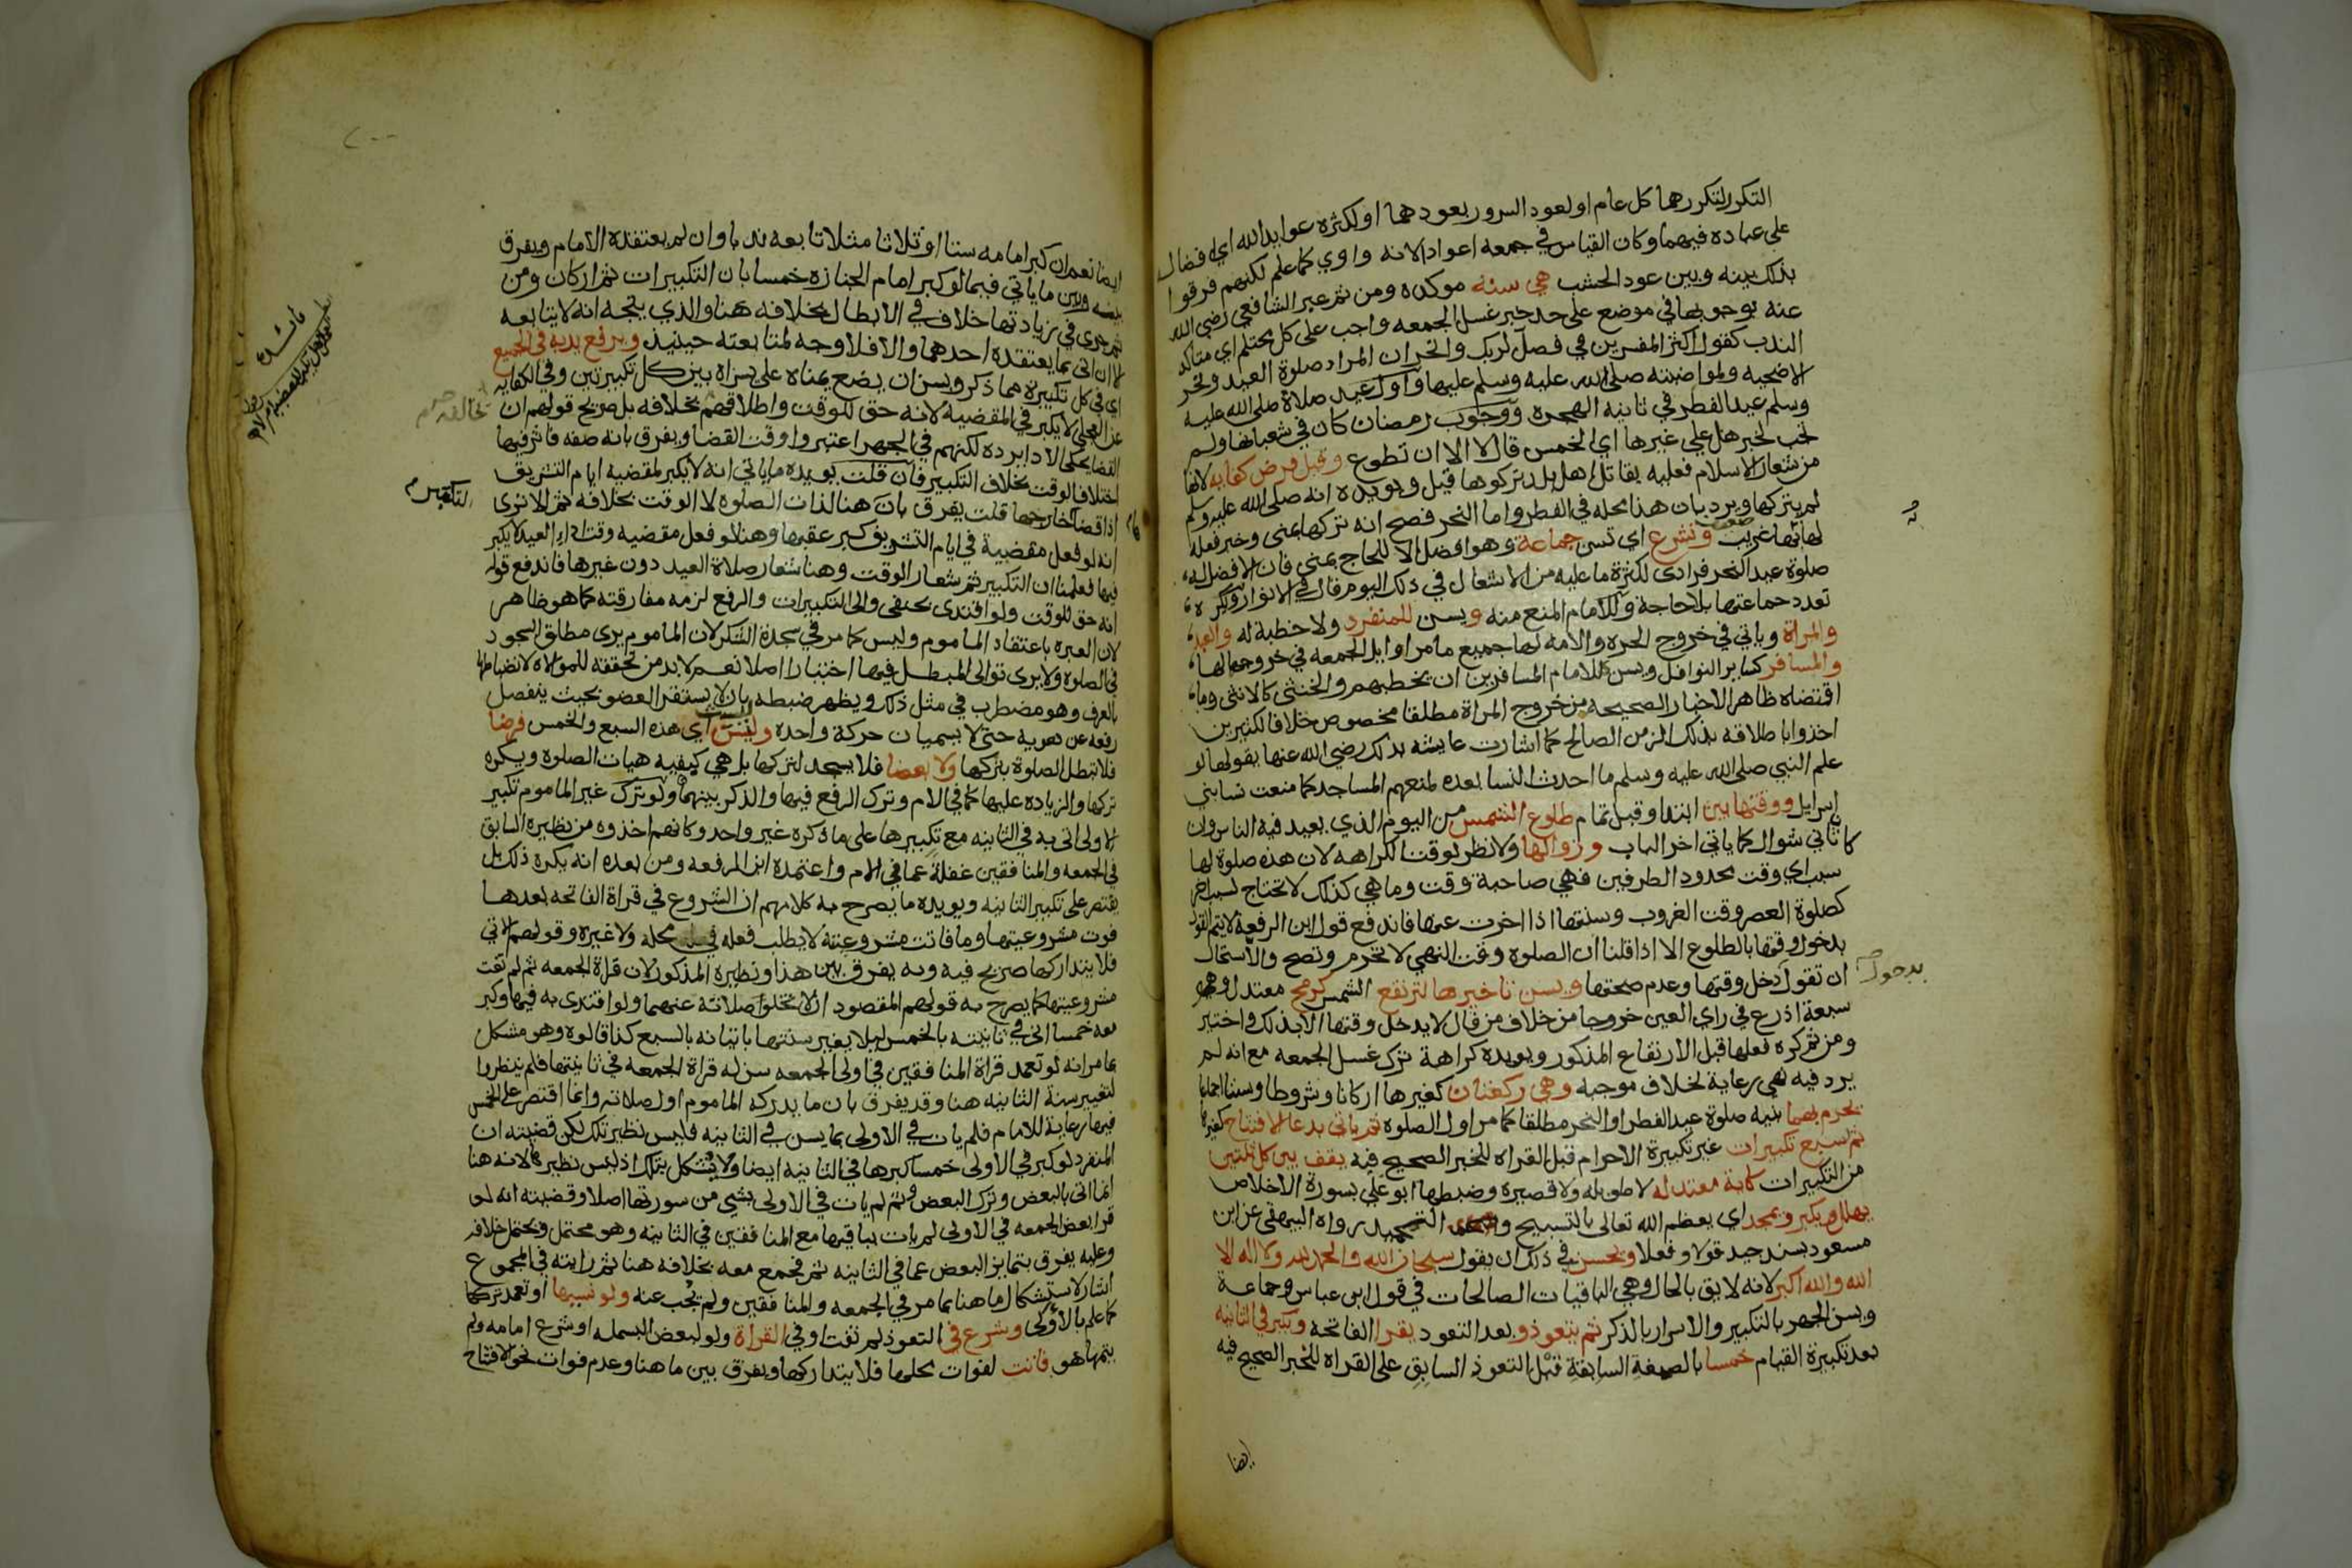 التكرر لتكررهما كل عام او لعود السرور بعودهما او لكثرة عوايد الله اي افضال
على عباده فيهما وكان القياس في جمعه اعواد لانه واوي كما علم لكنهم فرقوا
بذلك بينه وبين عود الخشب هي سنه موكده ومن ثم عبر الشافعي رضي الله
عنه بوجوبها في موضع على حد خبر غسل الجمعه واجب على كل محتلم اي متاكد
الندب كقول اكثر المفسرين في فصل لربك وانحر ان المراد صلوة العيد ونحر
الاضحيه ولمواضبته صلى الله عليه وسلم عليها واول عيد صلاة صلى الله عليه
وسلم عيد الفطر في ثانيه الهجره ووجوب رمضان كان في شعبانها ولم
تجب لخبر هل علي غيرها اي الخمس قال لا الا ان تطوع وقيل فرض كفايه لانها
من شعار الاسلام فعليه يقاتل اهل بلد تركوها قيل ويويده انه صلى الله عليه وسلم
لم يتركها ويرد بان هذا محله في الفطر واما النحر فصح انه تركها بمنى وخبر فعله
لها بها غريب ضعيف وتشرع اي تسن جماعة وهو افضل الا للحاج بمنى فان الافضل له
صلوة عيد النحر فرادى لكثرة ما عليه من الاشغال في ذلك اليوم قال في الانوار ويكره
تعدد جماعتها بلا حاجة وللامام المنع منه ويسن للمنفرد ولا خطبة له والعبد
والمراة وياتي في خروج الحره والامه لها جميع ما مر اوايل الجمعه في خروجهما لها
والمسافر كساير النوافل ويسن لامام المسافرين ان يخطبهم والخنثى كالانثى وما
اقتضاه ظاهر الاخبار الصحيحه من خروج المراة مطلقا مخصوص خلافا لكثيرين
اخذوا باطلاقه بذلك الزمن الصالح كما اشارت عايشه بذلك رضي الله عنها بقولها لو
علم النبي صلى الله عليه وسلم ما احدث النسا بعده لمنعهم المساجد كما منعت نسا بني
اسرايل ووقتها بين ابتدا وقيل تمام طلوع الشمس من اليوم الذي يعيد فيه الناس وان
كا ثاني شوال كما ياتي اخر الباب وزوالها ولا نظر لوقت الكراهه لان هذه صلوة لها
سبب اي وقت محدود الطرفين فهي صاحبة وقت وما هي كذلك لا تحتاج لسبب اخر
كصلوة العصر وقت الغروب وسنتها اذا اخرت عنها فاندفع قول ابن الرفعة لا يتم القول
بدخول وقتها بالطلوع الا اذا قلنا ان الصلوة وقت النهي لا تحرم وتصح والا استحال
ان تقول دخل وقتها وعدم صحتها ويسن تاخيرها لترتفع الشمس كرمح معتدل وهو
سبعة اذرع في راي العين خروجا من خلاف من قال لا يدخل وقتها الا بذلك واختير
ومن ثم كره فعلها قبل الارتفاع المذكور ويويده كراهة ترك غسل الجمعه مع انه لم
يرد فيه نهي رعاية لخلاف موجبه وهي ركعتان كغيرها اركانا وشروطا وسننا اجماعا
يحرم بهما بنيه صلوة عيد الفطر او النحر مطلقا كما مر اول الصلوه ثم ياتي بدعا الافتتاح كغيرها
ثم سبع تكبيرات غير تكبيرة الاحرام قبل القراه للخبر الصحيح فيه يقف بين كل ثنتين
من التكبيرات كاية معتدله لا طويله ولا قصيره وضبطها ابو علي بسورة الاخلاص
يهلل ويكبر ويمجد اي يعظم الله تعالى بالتسبيح والتحميد رواه البيهقي عن ابن
مسعود بسند جيد قولا وفعلا ويحسن في ذلك ان يقول سبحان الله والحمد لله ولا اله الا
الله والله اكبر لانه لايق بالحال وهي الباقيات الصالحات في قول ابن عباس وجماعة
ويسن الجهر بالتكبير والاسرار بالذكر ثم يتعوذ وبعد التعوذ يقرا الفاتحة ويكبر في الثانيه
بعد تكبيرة القيام خمسا بالصفة السابقة قبل التعوذ السابق على القراه للخبر الصحيح فيه
بدخول
ايضا
ايضا نعم ان كبر امامه ستا او ثلاثا مثلا تابعه ندبا وان لم يعتقده الامام ويفرق
بينه وبين ما ياتي فيما لو كبر امام الجنازه خمسا بان التكبيرات ثم اركان ومن
ثم جرى في زيادتها خلاف في الابطال بخلافه هنا والذي يتجه انه لا يتابعه
الا ان اتى بما يعتقده احدهما والا فلا وجه لمتابعته حينيذ ويرفع يديه في الجميع
اي في كل تكبيرة مما ذكر ويسن ان يضع يمناه على يسراه بين كل تكبيرتين وفي الكفايه
عن العجلي لا يكبر في المقضية لانه حق للوقت واطلاقهم يخالفه بل صريح قولهم ان
القضا يحكي الادا يرده لكنهم في الجهر اعتبروا وقت القضا ويفرق بانه صفه فاثر فيها
اختلاف الوقت بخلاف التكبير فان قلت يويده ما ياتي انه لا يكبر لمقضيه ايام التشريق
اذا قضاها خارجها قلت يفرق بان هنا لذات الصلوه لا الوقت بخلافه ثم الا ترى
انه لو فعل مقضية في ايام التشريق كبر عقبها وهنا لو فعل مقضيه وقت اداء العيد لا يكبر
فيها فعلمنا ان التكبير ثم شعار الوقت وهنا شعار صلاة العيد دون غيرها فاندفع قوله
انه حق للوقت ولو اقتدى بحنفي والى التكبيرات والرفع لزمه مفارقته كما هو ظاهر
لان العبره باعتقاد الماموم وليس كما مر في سجدة الشكر لان الماموم يرى مطلق السجود
في الصلوة ولا يرى توالي المبطل فيها اختيارا اصلا نعم لا بد من تحققه للموالاه لانضباطها
بالعرف وهو مضطرب في مثل ذلك ويظهر ضبطه بان لا يستقر العضو بحيث ينفصل
رفعه عن هويه حتى لا يسميان حركة واحده ولسن اي هذه السبع والخمس فرضا
فلا تبطل الصلوة بتركها ولا بعضا فلا يسجد لتركها بل هي كبقيه هيات الصلوة ويكره
تركها والزياده عليها كما في الام وترك الرفع فيها والذكر بينهما ولو ترك غير الماموم تكبير
الاولى اتى به في الثانيه مع تكبيرها على ما ذكره غير واحد وكانهم اخذوه من نظيره السابق
في الجمعه والمنافقين غفلة عما في الام واعتمده ابن الرفعه ومن بعده انه يكره ذلك بل
يقتصر على تكبير الثانيه ويويده ما يصرح به كلامهم ان الشروع في قراة الفاتحه بعدها
فوت مشروعيتها وما فاتت مشروعيته لا يطلب فعله في محله ولا غيره وقولهم الاتي
فلا يتداركها صريح فيه وبه يفرق بين هذا ونظيره المذكور لان قراة الجمعه ثم لم تفت
مشروعيتها كما يصرح به قولهم المقصود ان لا تخلو صلاته عنهما ولو اقتدى به فيها وكبر
معه خمسا اتى في ثانيته بالخمس ليلا يغير سنتها باتيانه بالسبع كذا قالوه وهو مشكل
بما مر انه لو تعمد قراة المنافقين في اولى الجمعه سن له قراة الجمعه في ثانيتها فلم ينظروا
لتغيير سنة الثانيه هنا وقد يفرق بان ما يدركه الماموم اول صلاته وانما اقتصر على الخمس
فيها رعاية للامام فلم يات في الاولى بما يسن في الثانيه فليس نظير تلك لكن قضيته ان
المنفرد لو كبر في الاولى خمسا كبرها في الثانيه ايضا ولا يشكل بتلك اذ ليس نظيرها لانه هنا
انما اتى بالبعض وترك البعض وثم لم يات في الاولى بشي من سورتها اصلا وقضيته انه لو
قرا بعض الجمعه في الاولى لم يات بباقيها مع المنافقين في الثانيه وهو محتمل ويحتمل خلافه
وعليه يفرق بتمايز البعض عما في الثانيه ثم فجمع معه بخلافه هنا ثم رايته في المجموع
اشار لاستشكال ما هنا بما مر في الجمعه والمنافقين ولم يجب عنه ولو نسيها او تعمد تركها
كما علم بالاولى وشرع في التعوذ لم تفت او في القراة ولو لبعض البسمله او شرع امامه ولم
يتمها هو فاتت لفوات محلها فلا يتداركها ويفرق بين ما هنا وعدم فوات نحو الافتتاح
يخالفه
التكبير